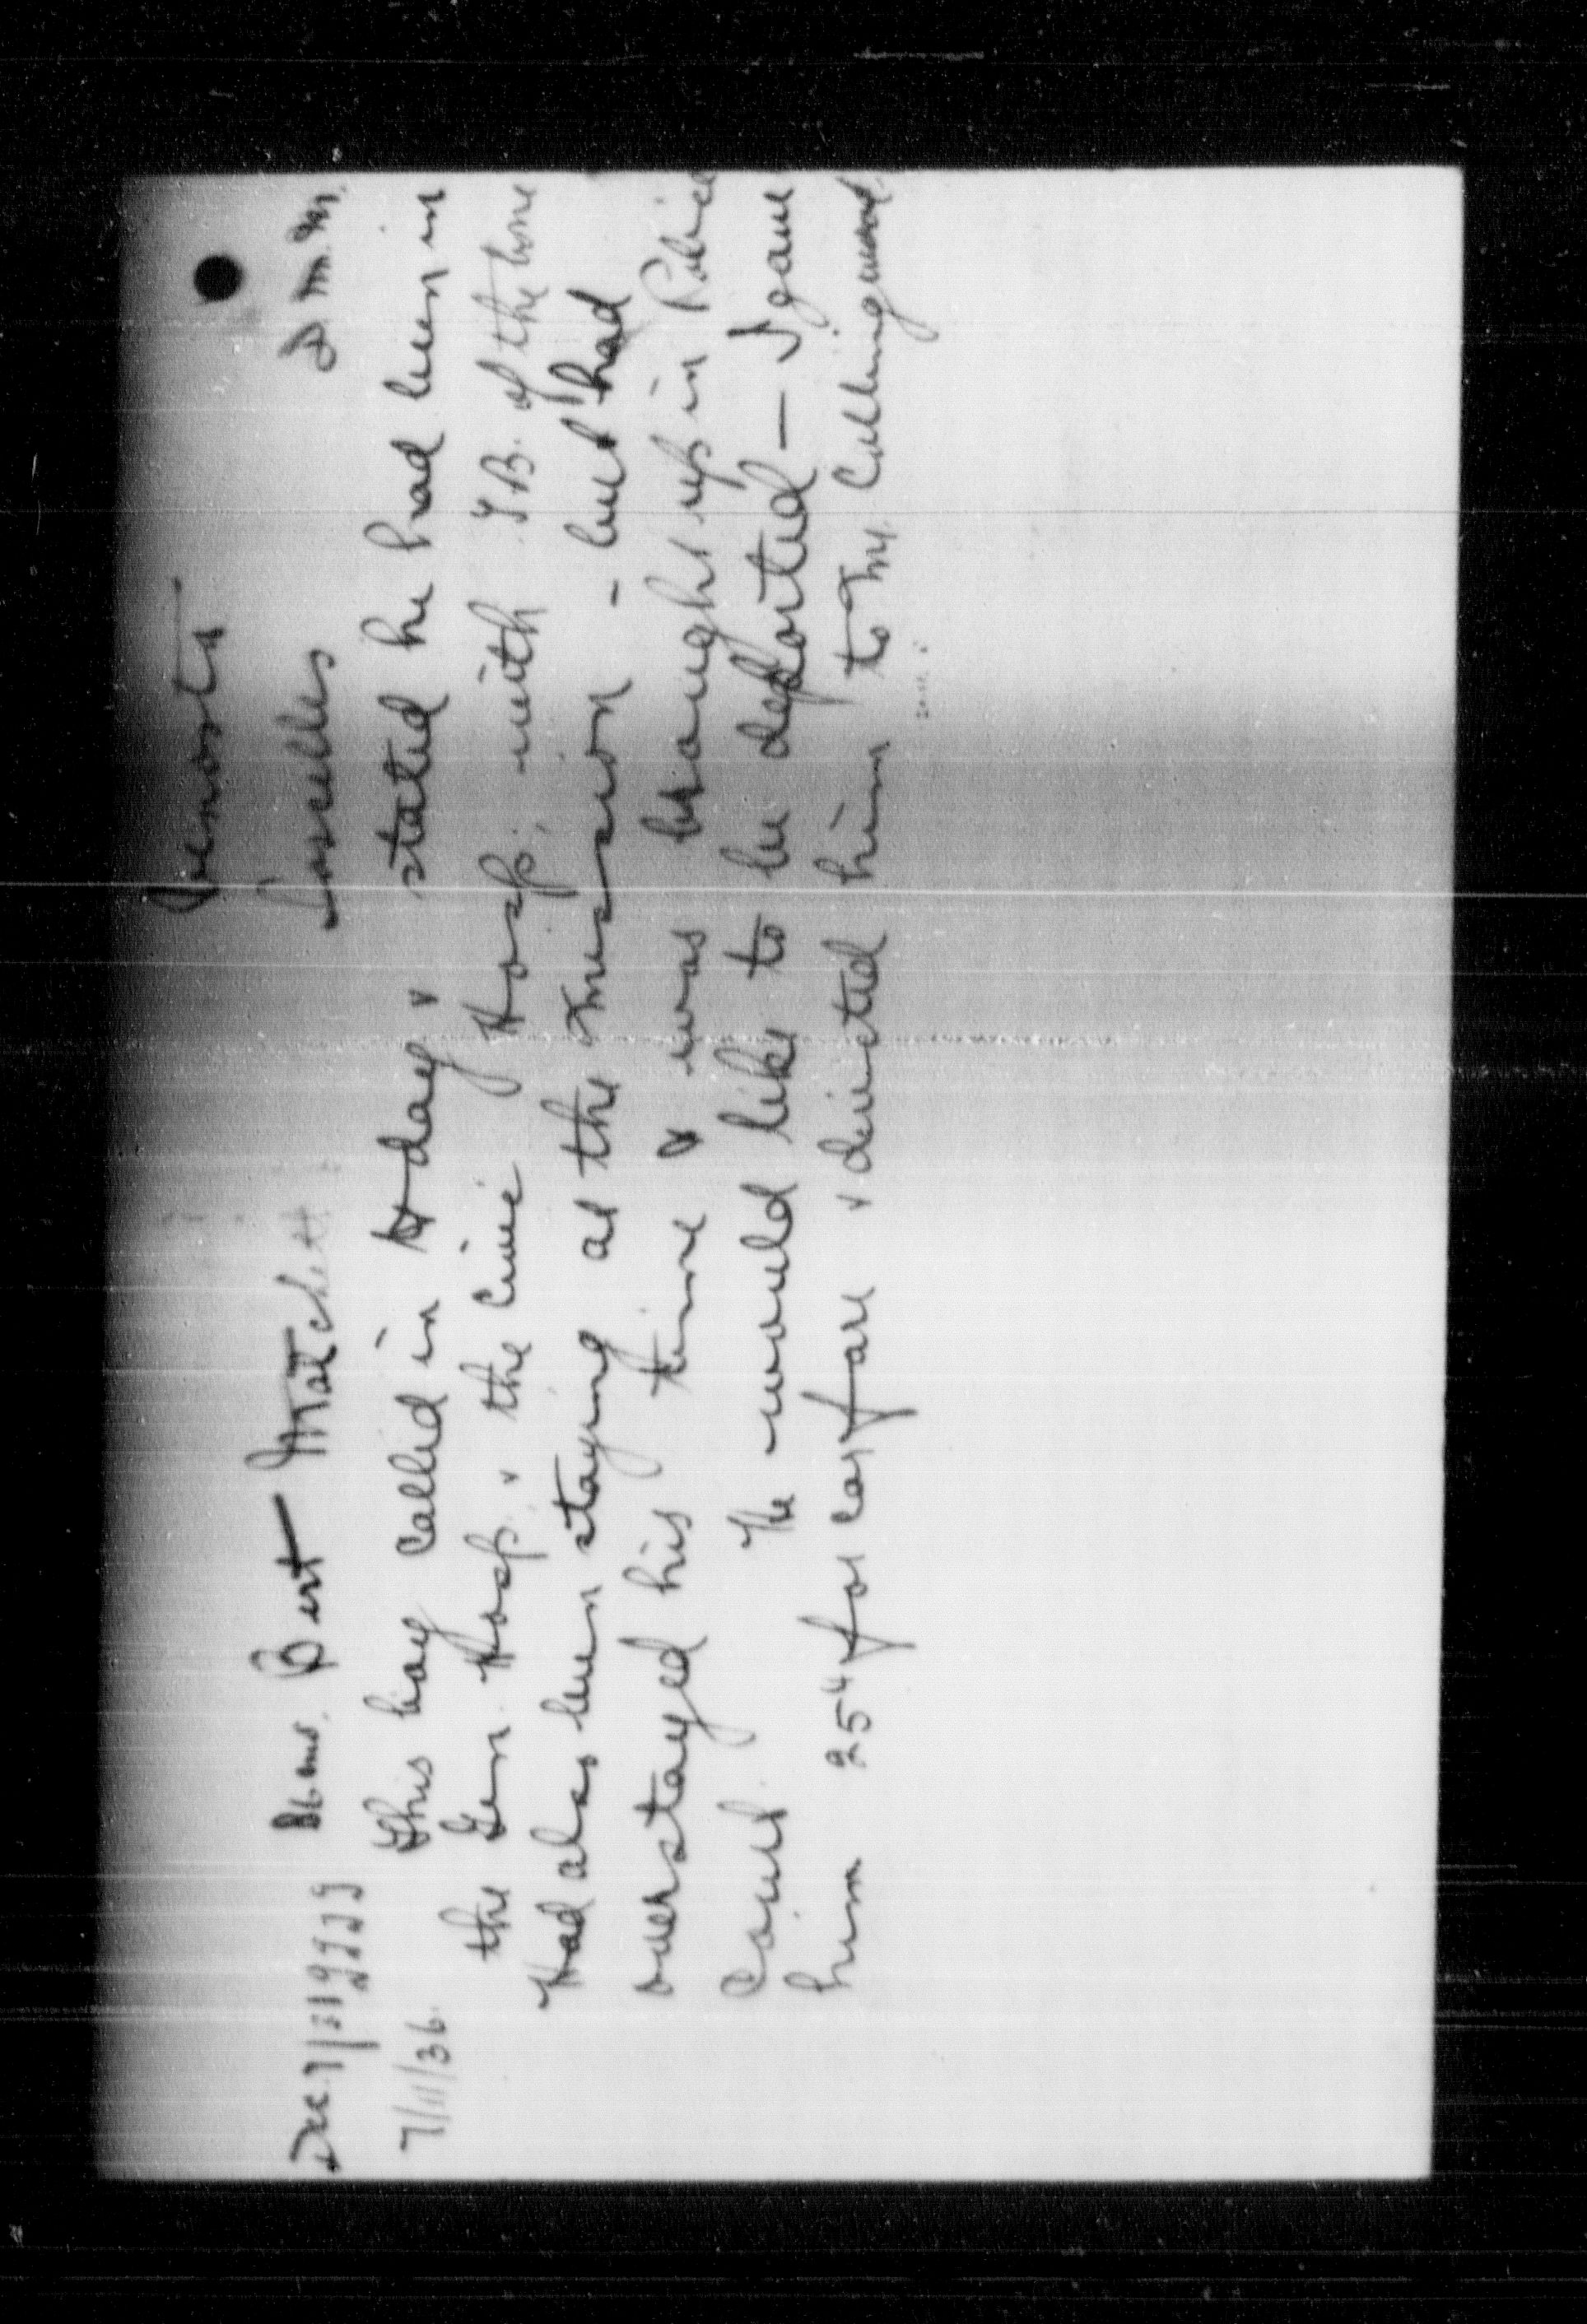 Bert Matchett
7/11/36. This boy called in today & stated he had been in
the Gen. Hosp. & the Civic Hosp. with T.B. of the bone
Had also been staying at the Mission - but had
overstayed his time & was brought up in Police
Court. He would like to be deported — I gave
him 25¢ for carfare & directed him to Mr. Collingwood